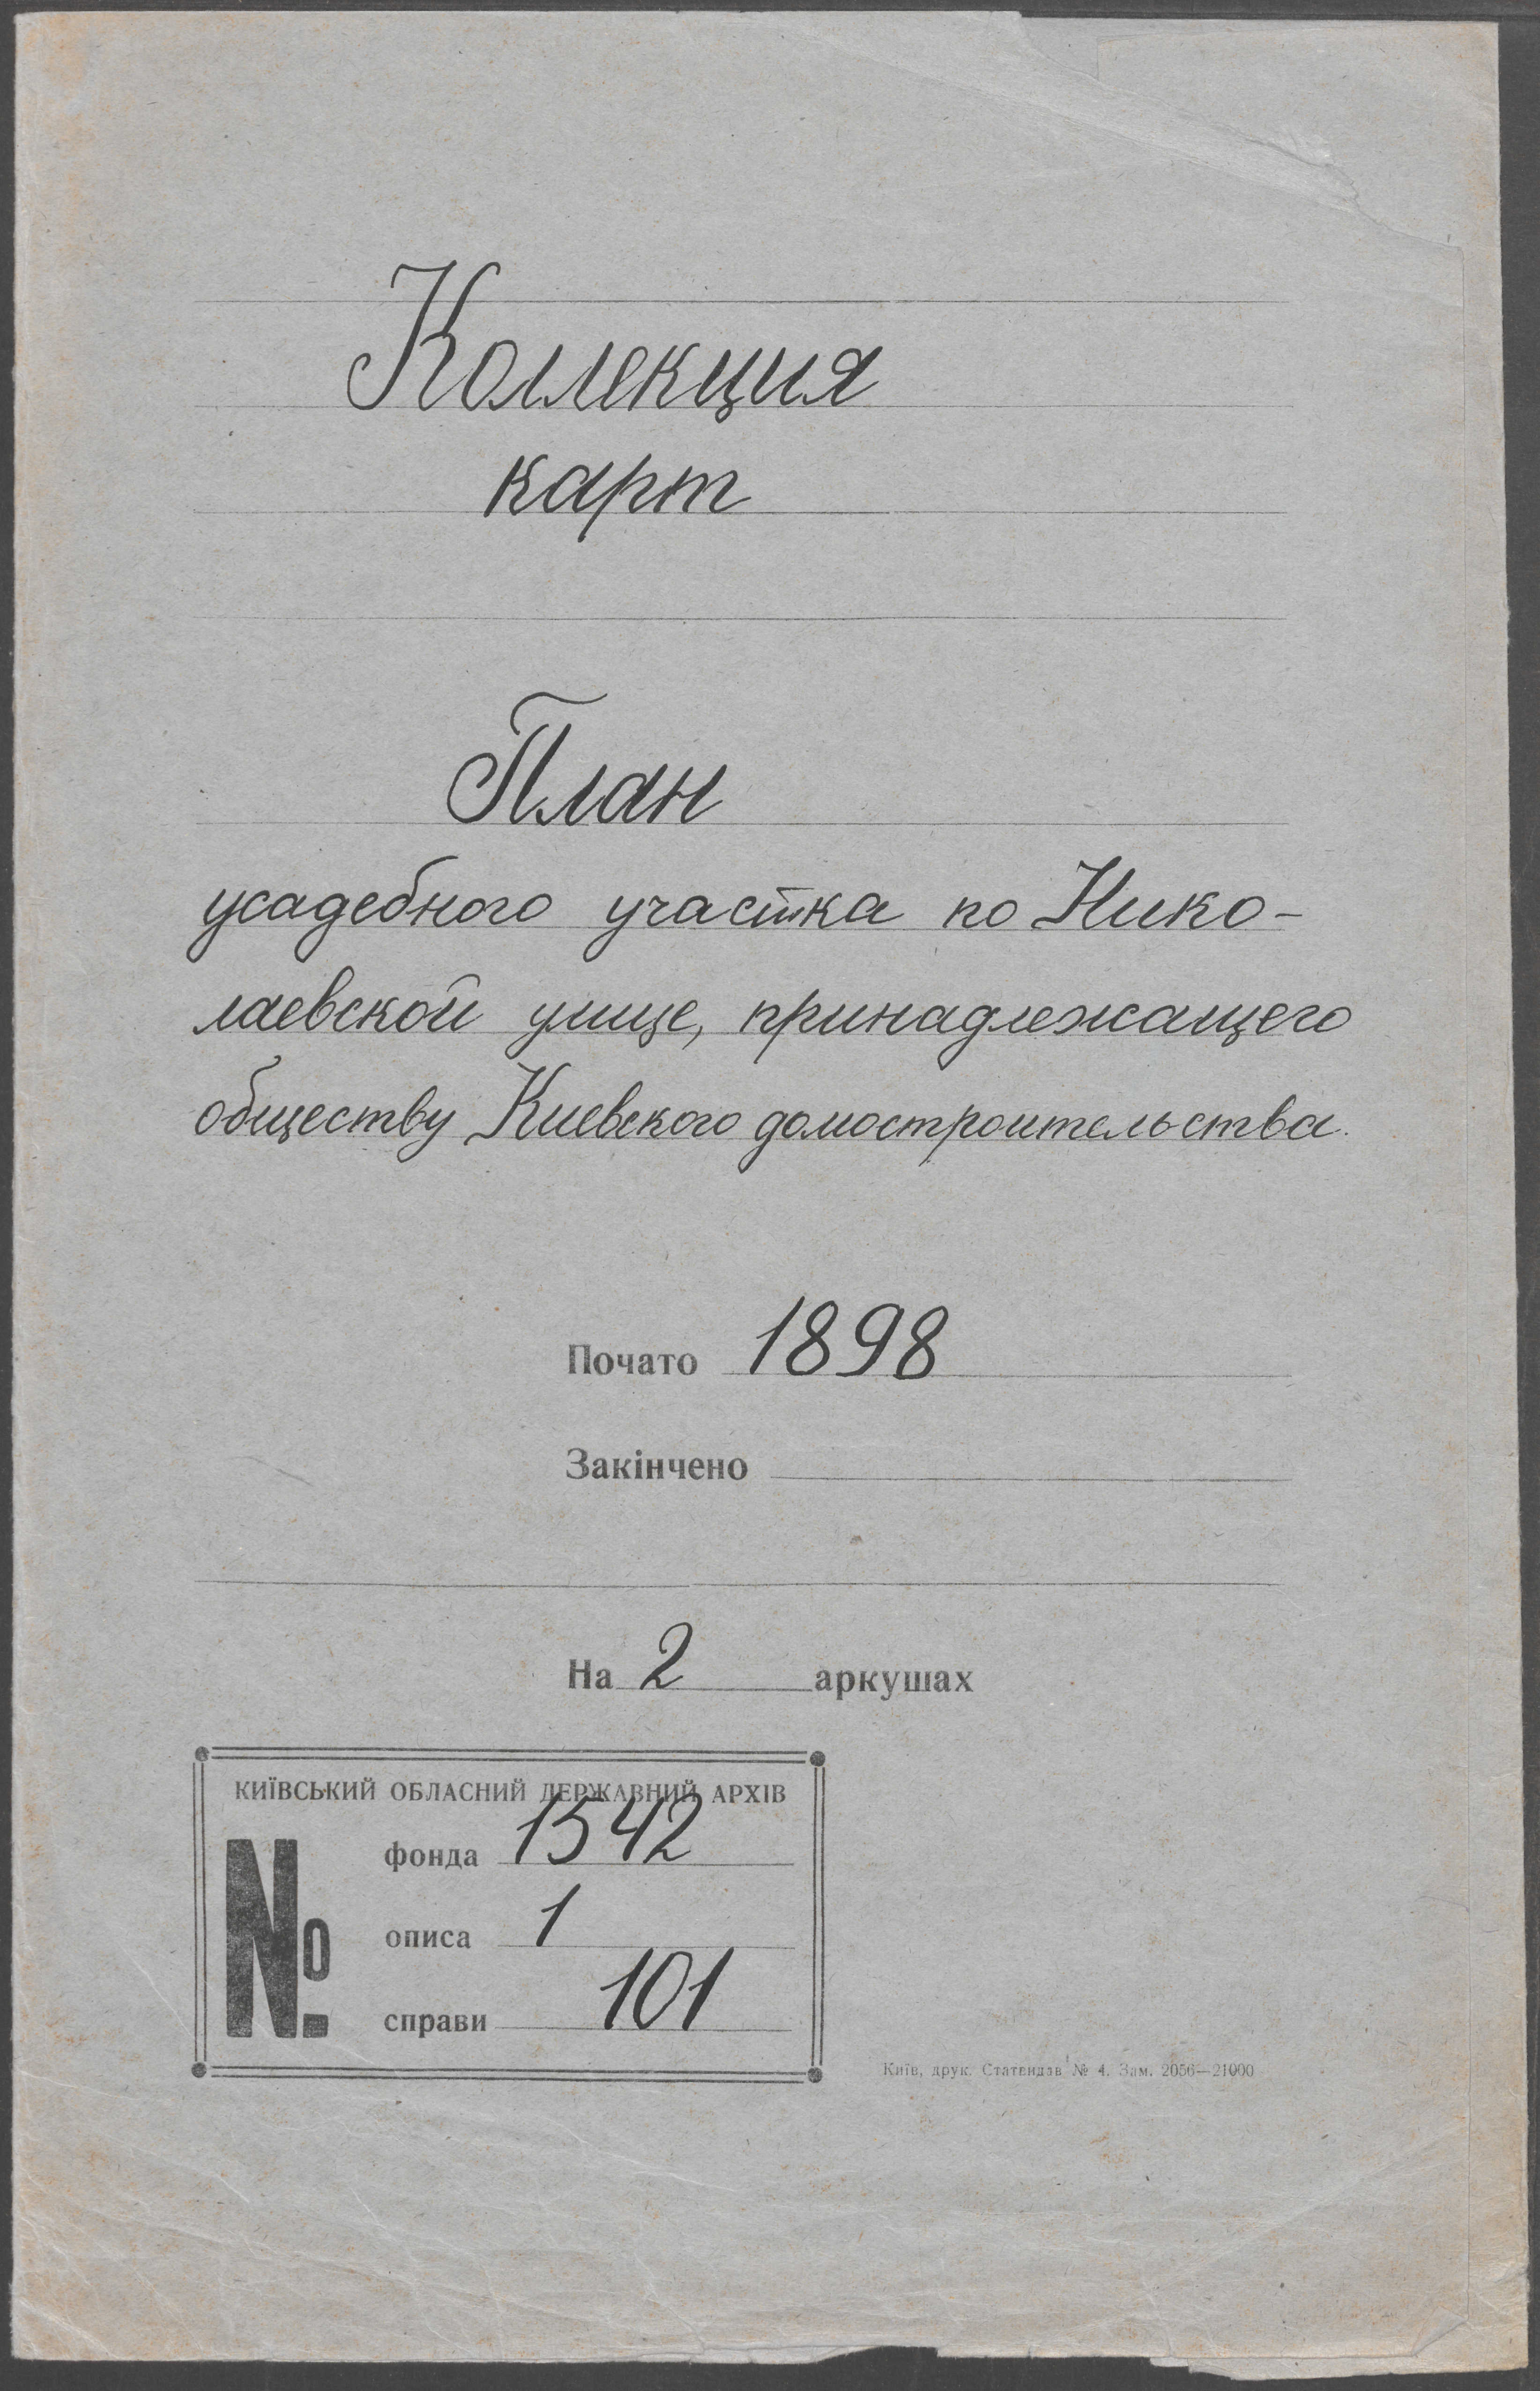 Коллекция
карт
План
усадебного участка по Нико-
лаевской улице, принадлежащего
обществу Киевского домостроительства.
Почато 1898
Закінчено
На 2 аркушах
КИЇВСЬКИЙ ОБЛАСНИЙ ДЕРЖАВНИЙ АРХІВ
№
фонда 1542
описа 1
справи 101
Київ, друк. № 4. Зам. 2056—21000